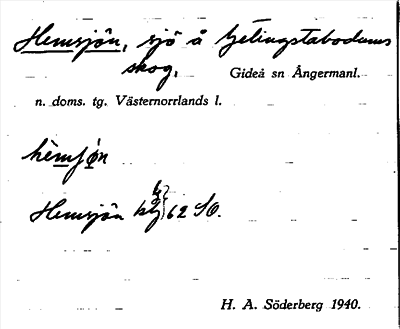 Hemsjön, sjö å Getingstabodarnas
skog. Gideå sn Ångermanl.
n. doms. tg. Västernorrlands l.
Hemsjön 62 SO.
H. A. Söderberg 1940.